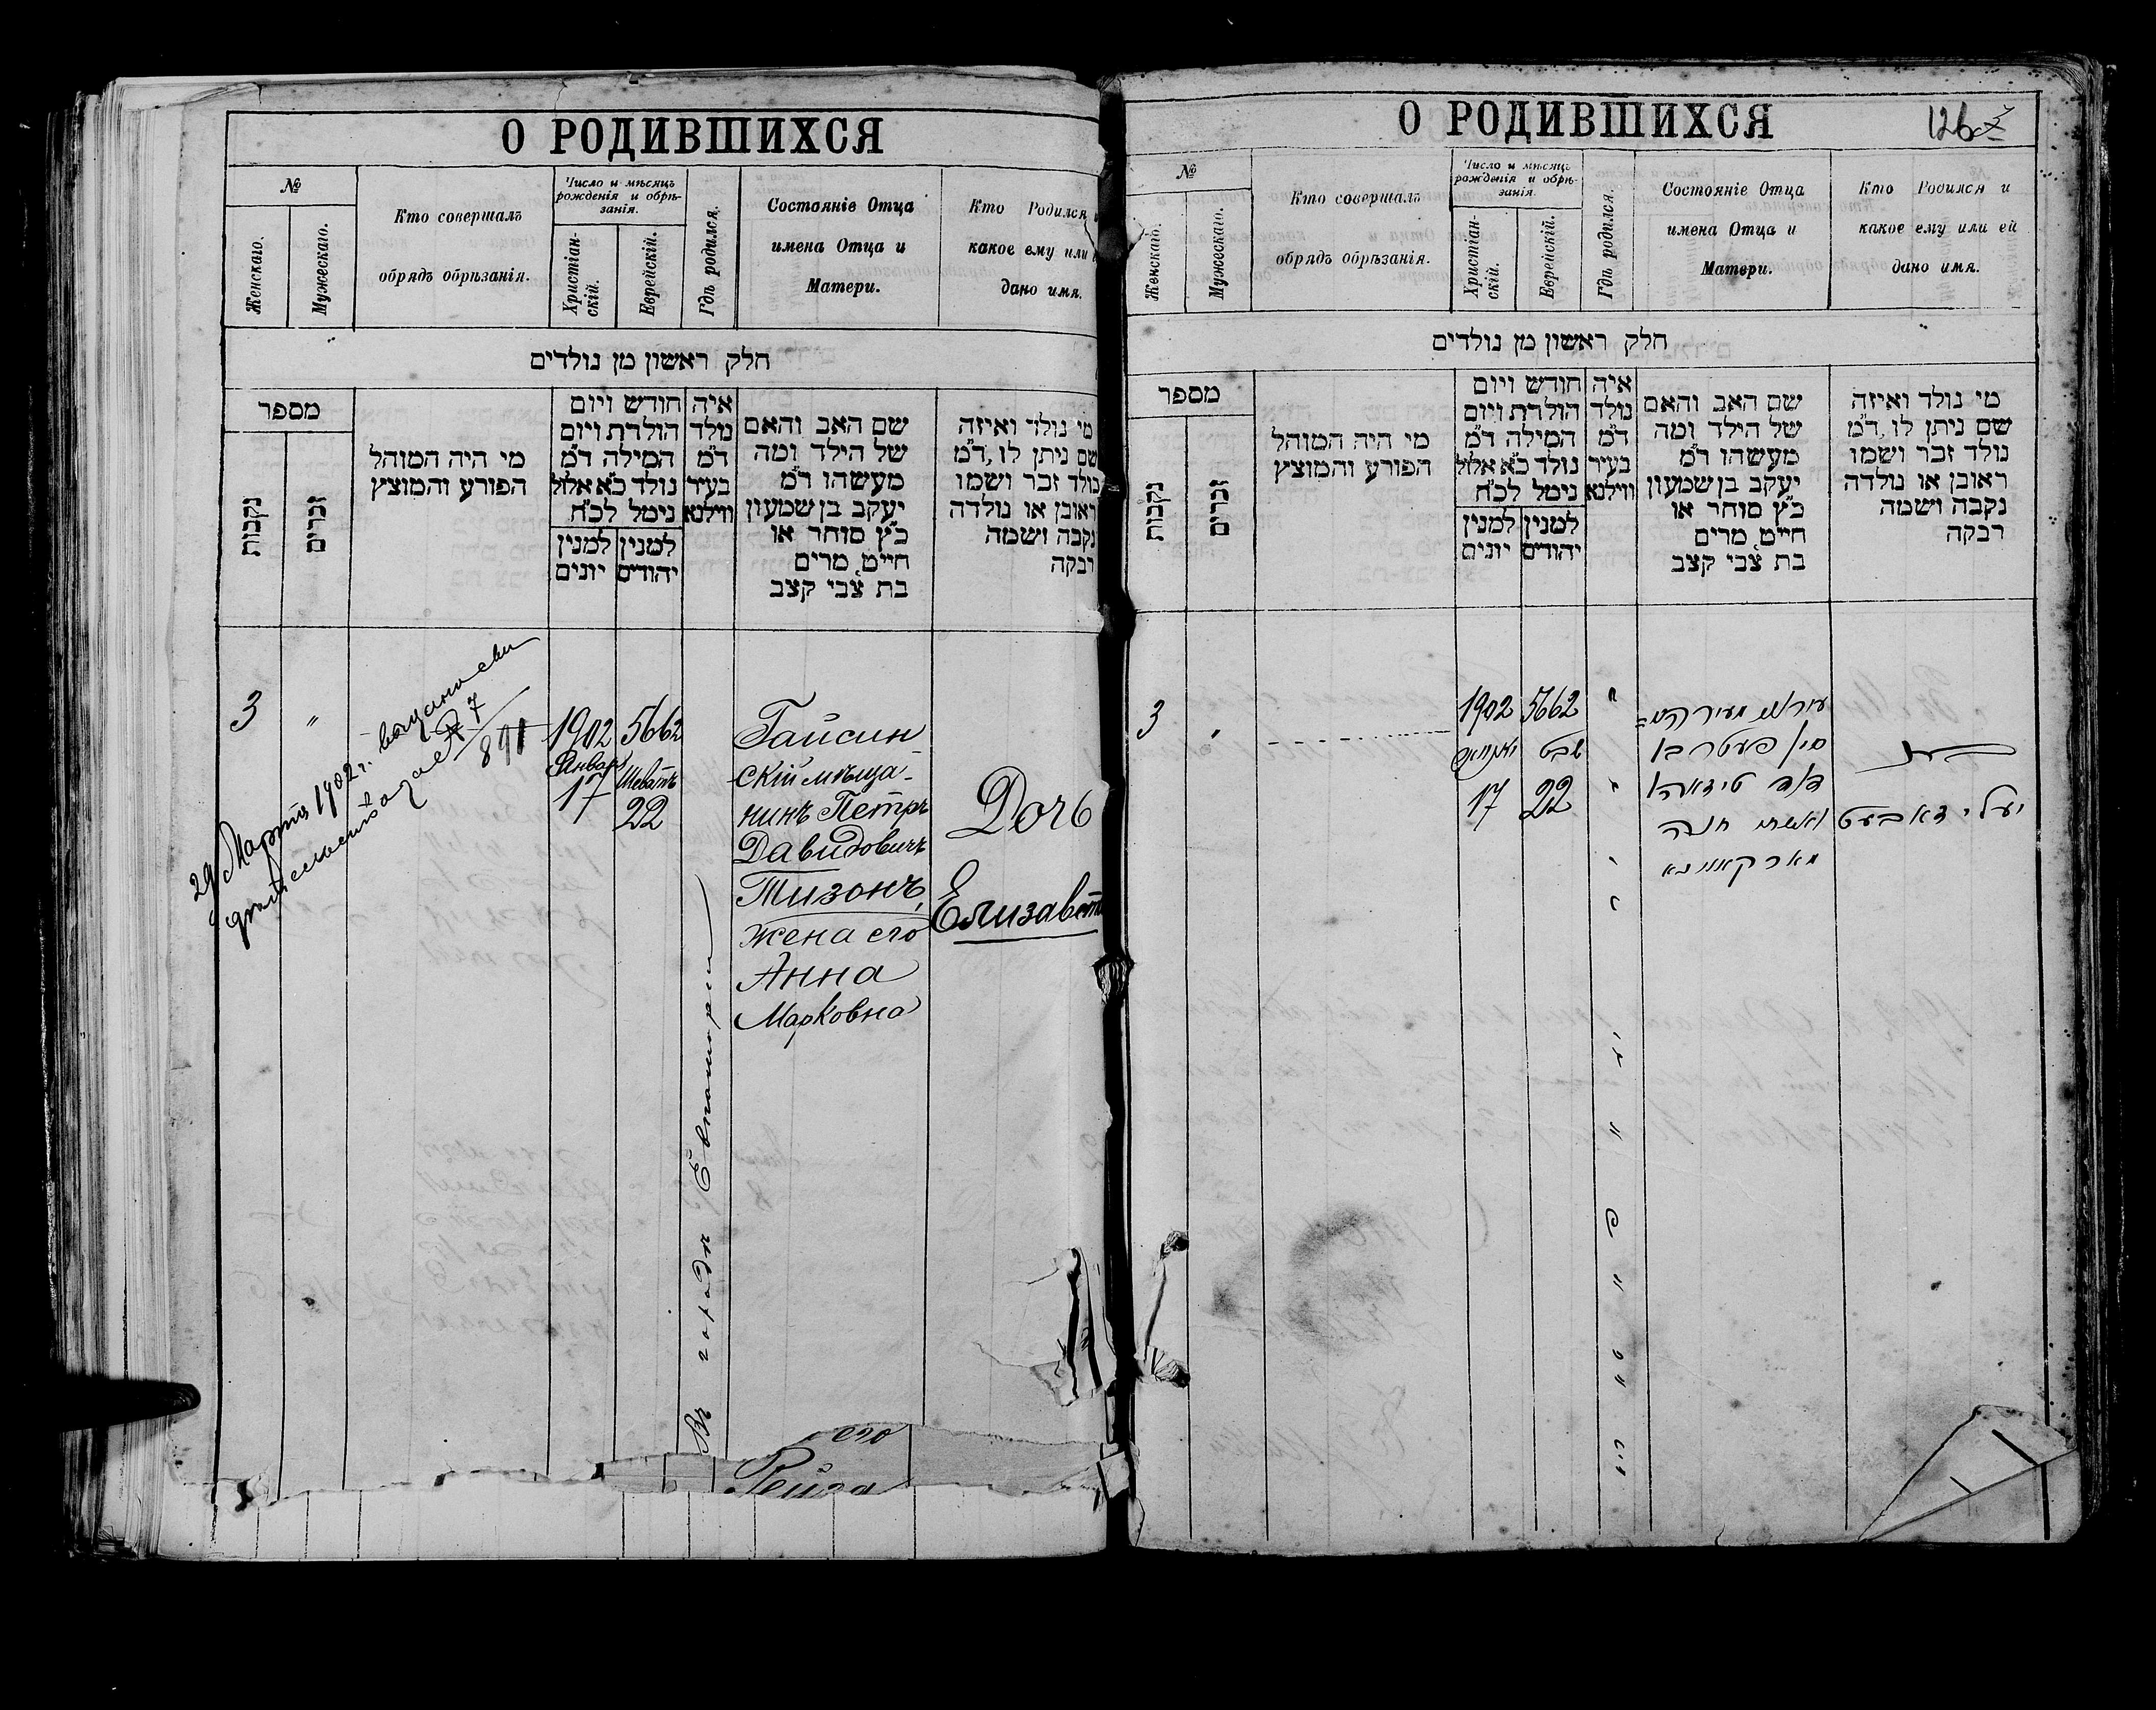 О РОДИВШИХСЯ
№
Женскаго.
Мужескаго.
Кто совершалъ
обрядъ обрѣзанія.
Число и мѣсяцъ
рожденія и обрѣ-
занія.
Христіан-
скій.
Еврейскій.
Гдѣ родился.
Состояніе Отца
имена Отца и
Матери.
Кто Родился и
какое ему или
дано имя.
חלק ראשון מן נולדים
מספר
נקבות
זכרים
מי היה המוהל
הפורע והמוצץ
חודש ויום
הולדת ויום
המילה ד״מ
נולד כ״א אלול
נימל לכ״ח
למנין
יונים
למנין
יהודים
איה
נולד
ד״מ
בעיר
ווילנא
שם האב והאם
של הילד ומה
מעשהו ד״מ
יעקב בן שמעון
כ״ץ סוחר או
חייט, מרים
בת צבי קצב
מי נולד ואיזה
שם ניתן לו, ד״מ
נולד זכר ושמו
ראובן או נולדה
נקבה ושמה
רבקה
3
"
29 Марта 1902 г. выдано сви
дѣтельство за № 7/891
1902
Январь
17
5662
Шеватъ
22
Въ городѣ Евпаторіи
Гайсин
скій мѣща-
нинъ Петръ
Давидовичъ
Тизонъ,
жена его
Анна
Марковна
Дочь
Елизавет
его
Рейза
О РОДИВШИХСЯ
126
№
Женскаго.
Мужескаго.
Кто совершалъ
обрядъ обрѣзанія.
Число и мѣсяцъ
рожденія и обрѣ-
занія.
Христіан-
скій.
Еврейскій.
Гдѣ родился.
Состояніе Отца
имена Отца и
Матери.
Кто Родился и
какое ему или ей
дано имя.
חלק ראשון מן נולדים
מספר
נקבות
זכרים
מי היה המוהל
הפורע והמוצץ
חודש ויום
הולדת ויום
המילה ד״מ
נולד כ״א אלול
נימל לכ״ח
למנין
יונים
למנין
יהודים
איה
נולד
ד״מ
בעיר
ווילנא
שם האב והאם
של הילד ומה
מעשהו ד״מ
יעקב בן שמעון
כ״ץ סוחר או
חייט, מרים
בת צבי קצב
מי נולד ואיזה
שם ניתן לו, ד״מ
נולד זכר ושמו
ראובן או נולדה
נקבה ושמה
רבקה
3
1902
יאנואר
17
5662
שבט
22
פעטר בן
דוד
ואשתו חנה
מארקאוונא
בת